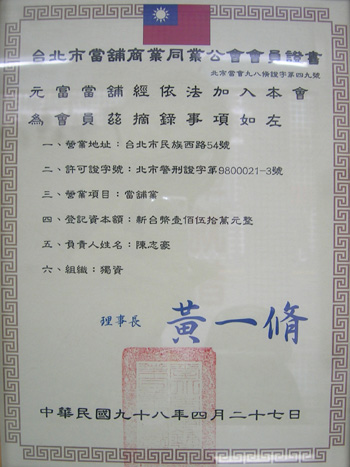 台北市當舖商業同業公會會員證書
北市當會九八脩證字第四九號
元富當舖經依法加入本會
為會員茲摘錄事項如左
一、營業地址：台北市民族西路54號
二、許可證字號：北市警刑證字第9800021-3號
三、營業項目：當舖業
四、登記資本額：新台幣壹佰伍拾萬元整
五、負責人姓名：陳志豪
六、組織：獨資
理事長 黃一脩
中華民國九十八年四月二十七日